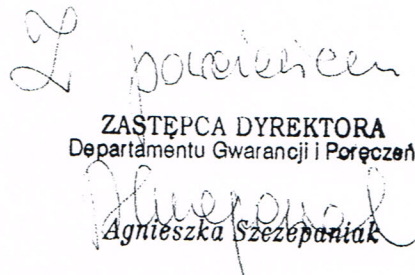 Z poważaniem
ZASTĘPCA DYREKTORA
Departamentu Gwarancji i Poręczeń
Agnieszka Szczepaniak